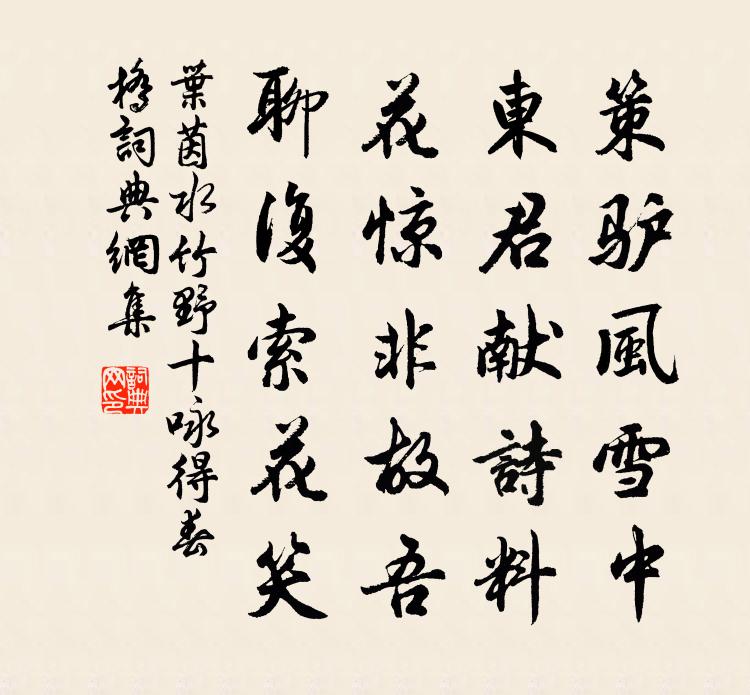 策驴風雪中
東君献詩料
花惊非故吾
聊復索花笑
葉茵水竹野十咏得春
橋詞典網集
詞典網印